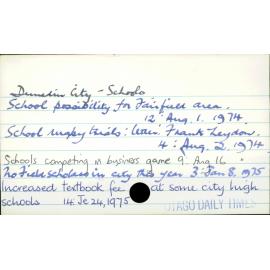 Dunedin City - Schools
School possibility for Fairfield area.
12: Aug. 1. 1974.
School rugby trials: Frank Leydon.
4: Aug. 2. 1974
Schools competing in business game 9. Aug 16 "
No Field scholars in city this year 3. Jan 8, 1975
Increased textbook fee at some city high
schools 14. Je 24, 1975
OTAGO DAILY TIMES